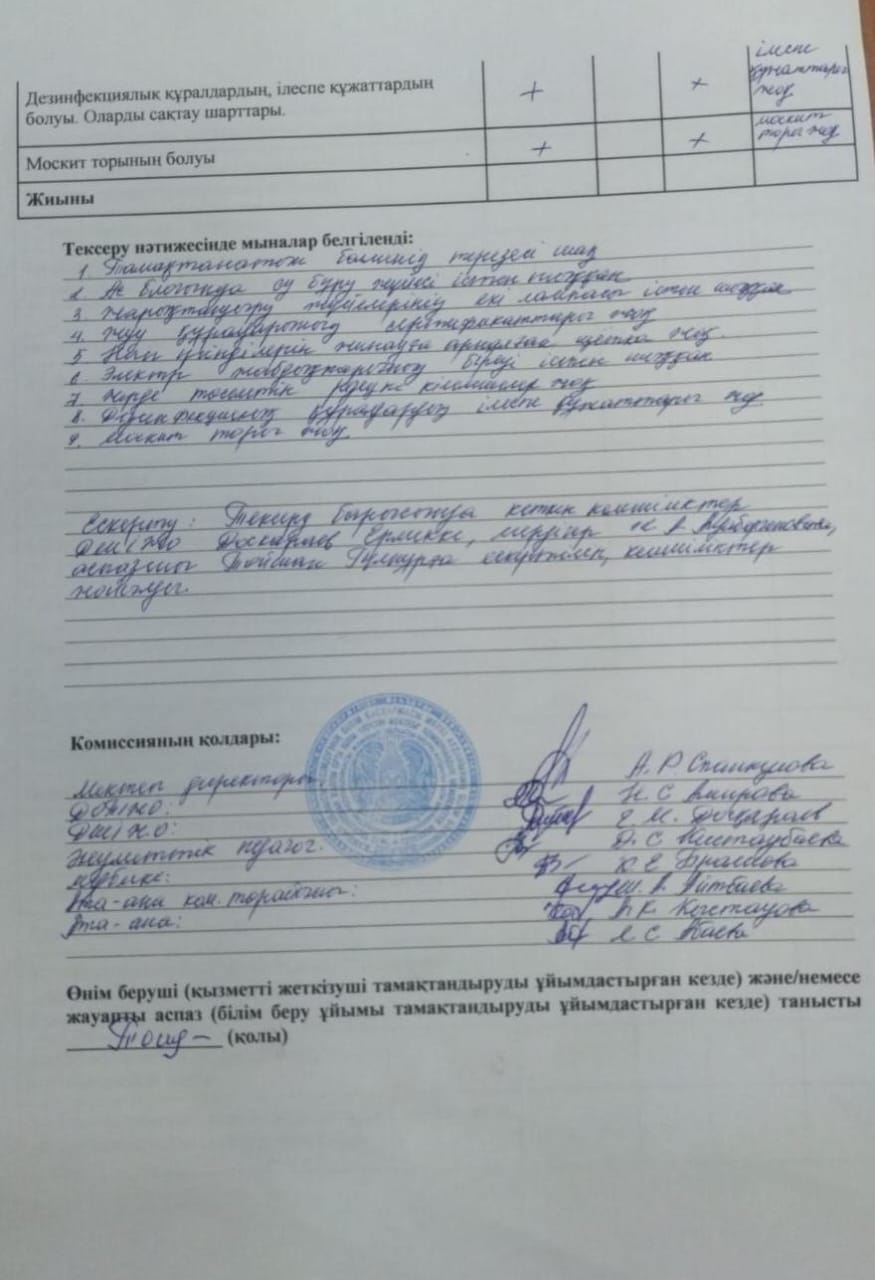 Дезинфекциялық құралдардың, ілеспе құжаттардың + + ілеспе
болуы. Оларды сақтау шарттары. құжаттары жоқ
Москит торының болуы + + москит торы жоқ
Жиыны
Тексеру нәтижесінде мыналар белгіленді:
1. бөлмениң терезесі
2. Ас блогында су бұру жүйесі істен шыққан
3. жарықтандыру жүйелерінің екі лампасы істен шыққан
4. жуу құралдарының сертификаттары жоқ
5. Нан үгінділерін жинауға арналған щетка жоқ.
6. Электр жабдықтарының біреуі істен шыққан
7. жерде төселетін резеңке кілемшелер жоқ
8. Дезинфекциялық құралдардың ілеспе құжаттары жоқ
9. Москит торы жоқ.
Ескерту: Тексеру барысында кеткен кемшіліктер
ДШІЖО Досқараев Ерликке, мейіргер
аспазшы Тойшан Гүлнұрға ескертілген, кемшіліктер
жойылуы.
Комиссияның қолдары:
Мектеп директоры: А. Р. Спанкулова
ДОІЖО: Н. С Амирова
ДШІЖО: Е. М. Досқараев
Әлеуметтік педагог: Д. С
медбике: К Е
Ата-ана ком. төрайымы: Ш. А. Айтбаева
Ата-ана: А К.
С Баева
Өнім беруші (қызметті жеткізуші тамақтандыруды ұйымдастырған кезде) және/немесе
жауапты аспаз (білім беру ұйымы тамақтандыруды ұйымдастырған кезде) танысты
(қолы)